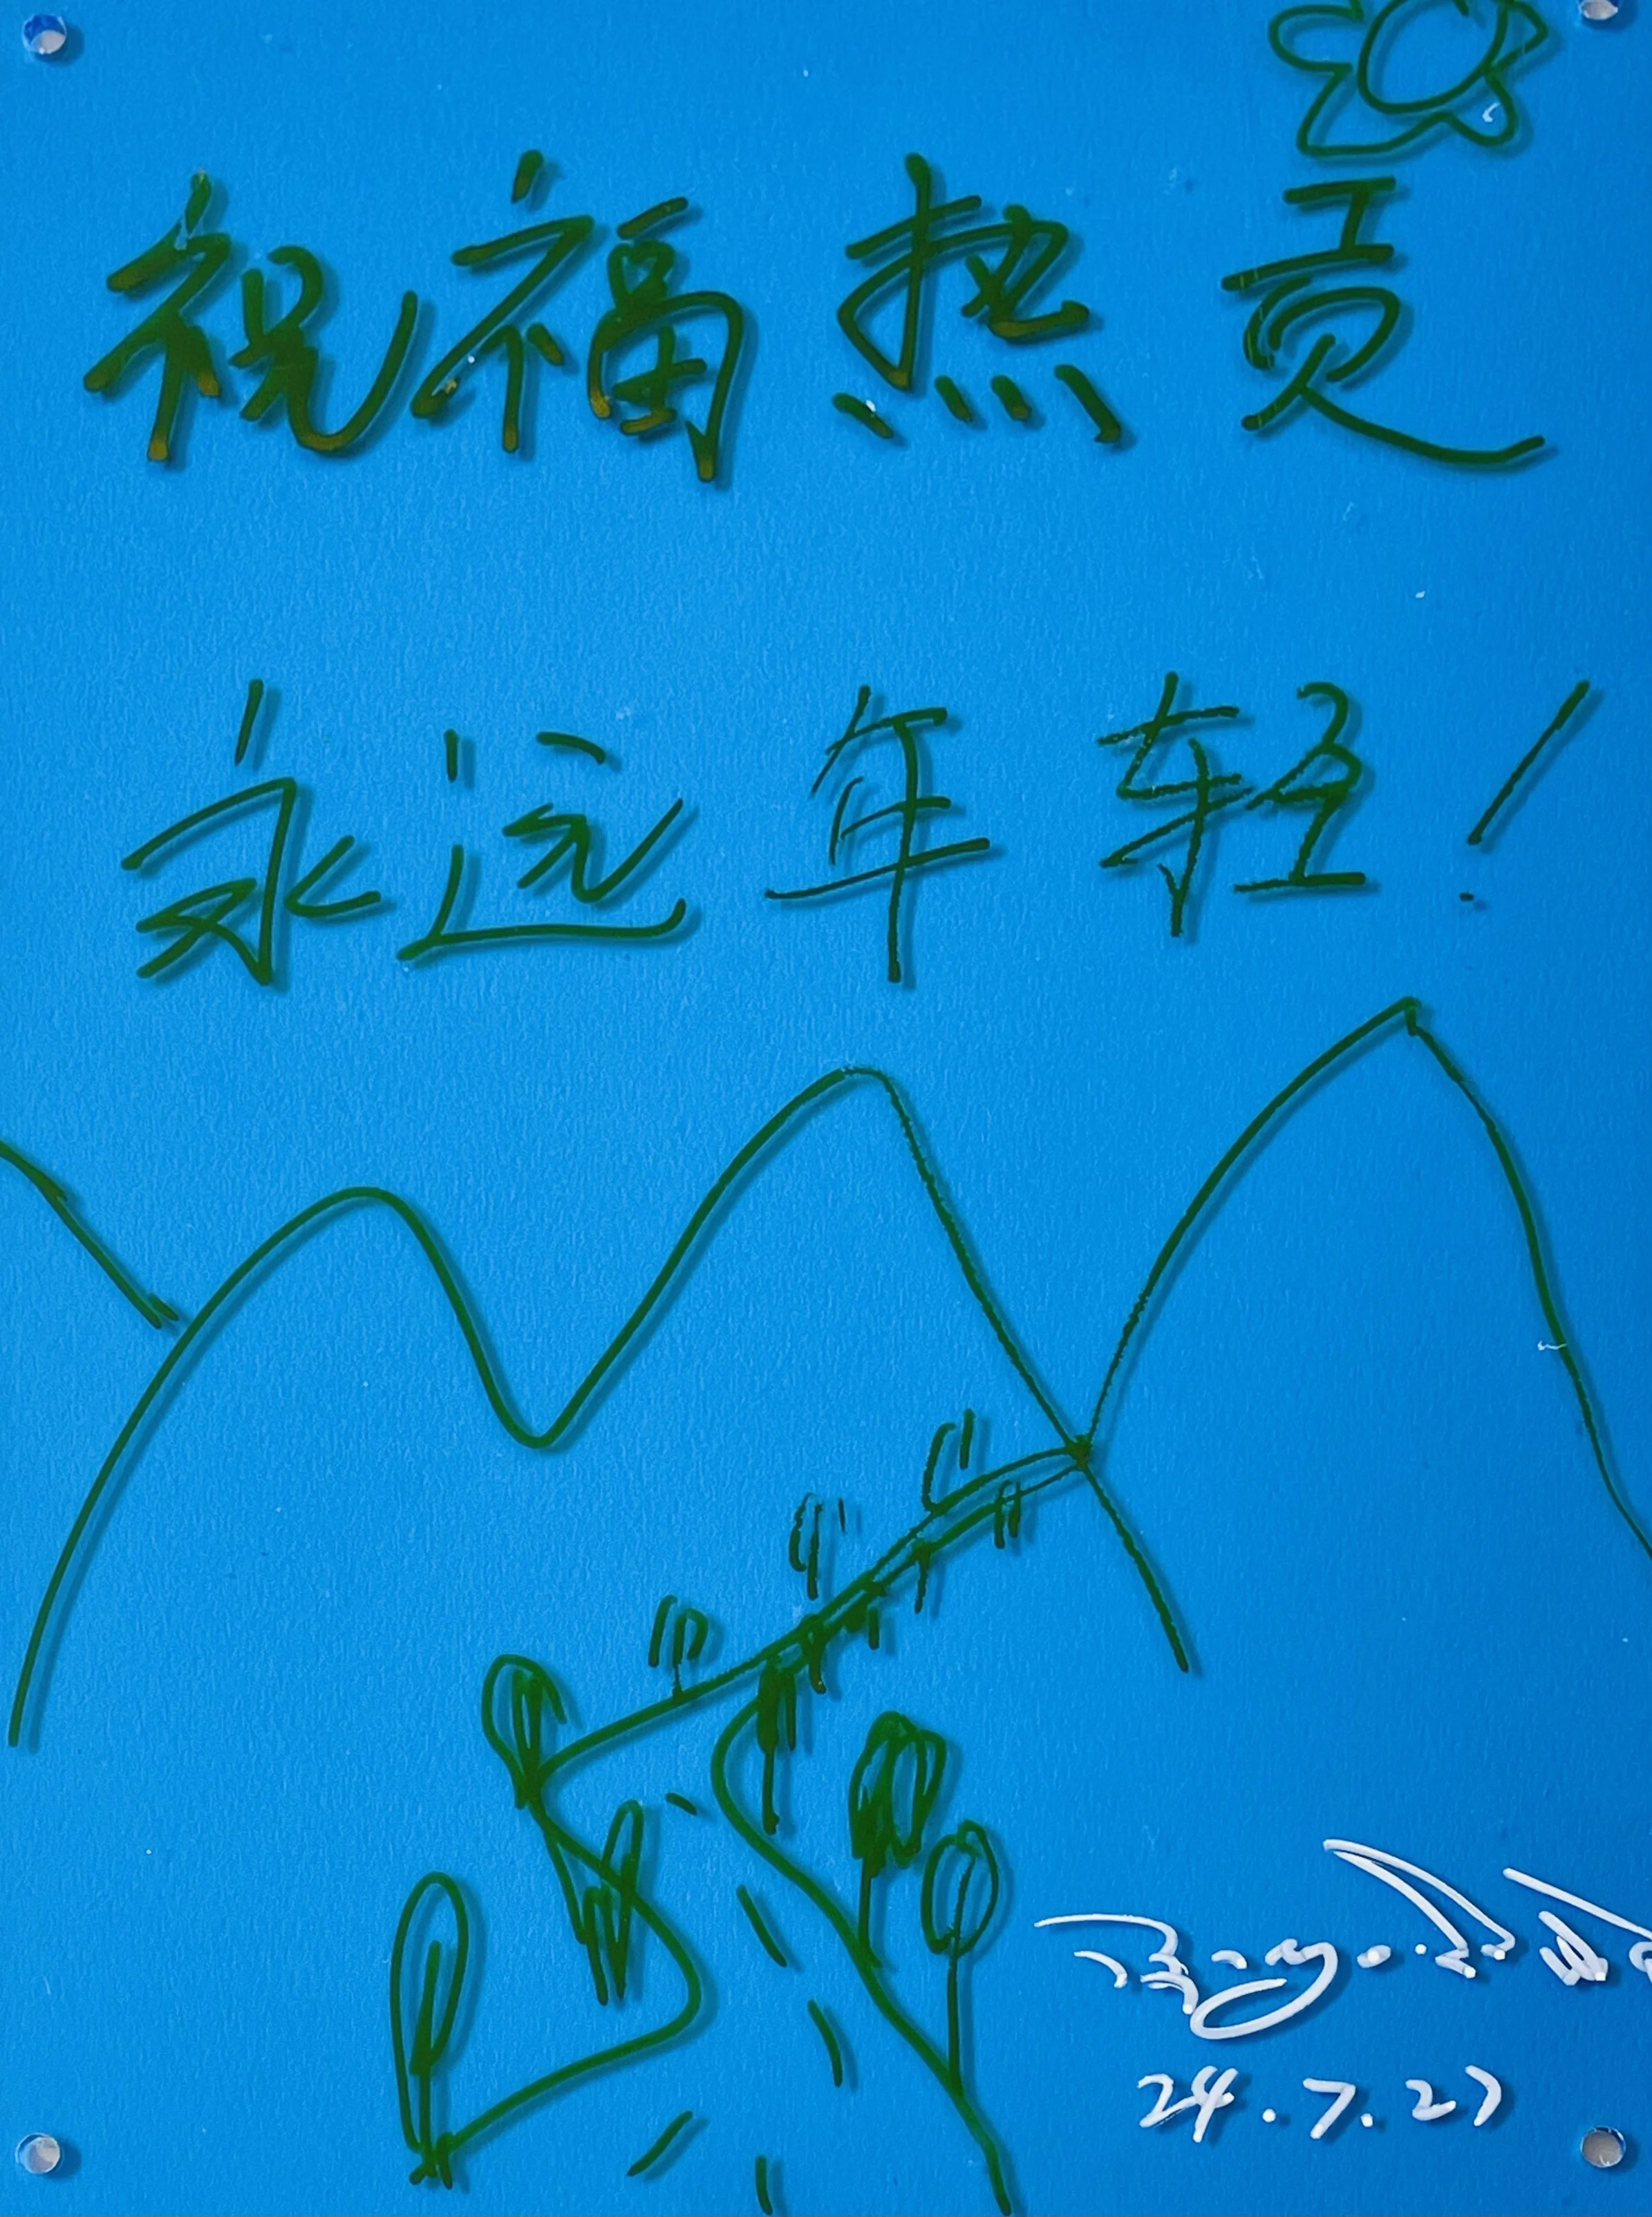 祝福热贡
永远年轻!
24.7.27